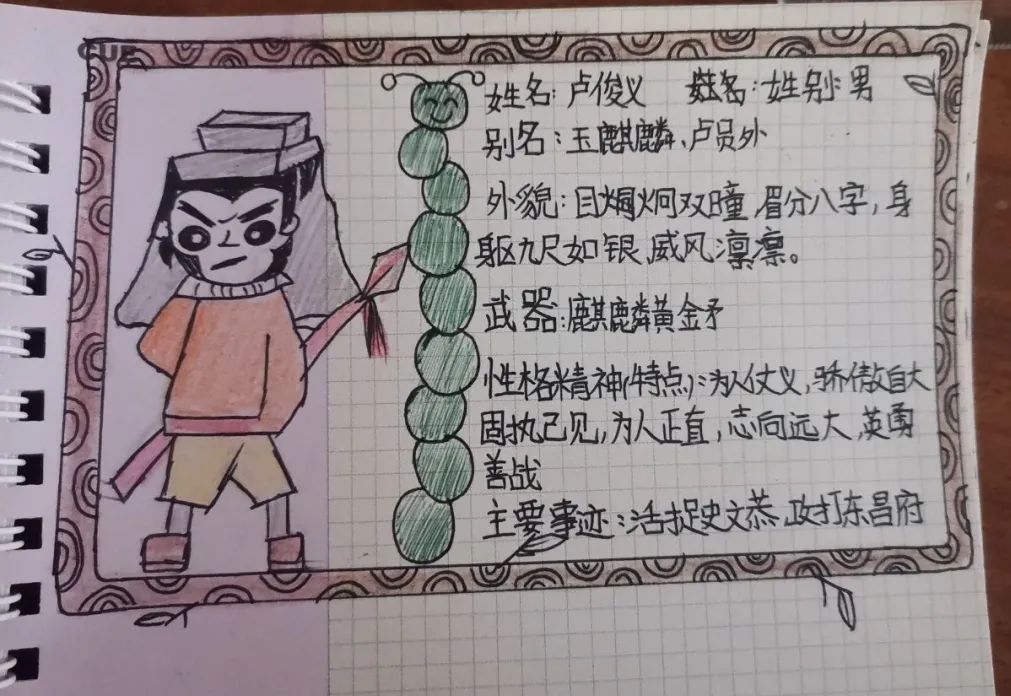 姓名：卢俊义 姓别：男
别名：玉麒麟、卢员外
外貌：目炯炯双瞳，眉分八字，身
躯九尺如银，威风凛凛。
武器：麒麟黄金矛
性格精神(特点)：为人仗义，骄傲自大
固执己见，为人正直，志向远大，英勇
善战
主要事迹：活捉史文恭，攻打东昌府